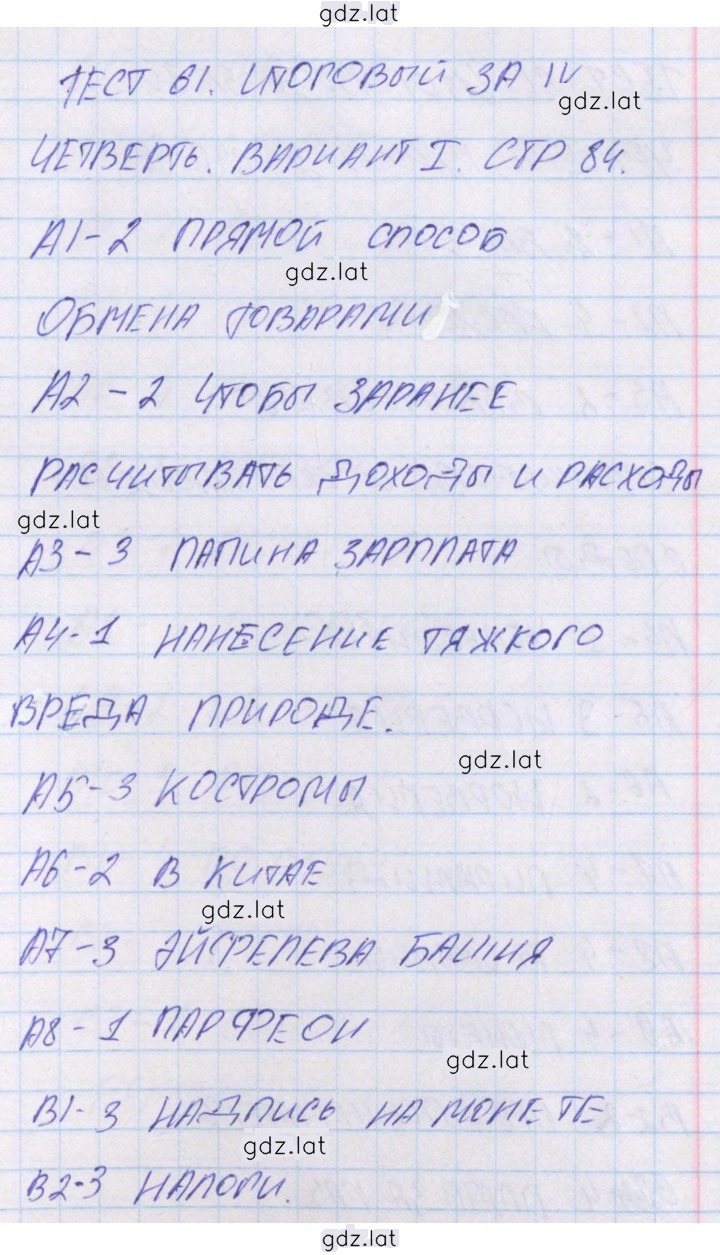 gdz.lat
ТЕСТ 61. ИТОГОВЫЙ ЗА IV
gdz.lat
ЧЕТВЕРТЬ. ВАРИАНТ I. СТР 84.
А1-2 ПРЯМОЙ СПОСОБ
gdz.lat
ОБМЕНА ТОВАРАМИ
А2-2 ЧТОБЫ ЗАРАНЕЕ
РАСЧИТЫВАТЬ ДОХОДЫ И РАСХОДЫ
gdz.lat
А3-3 ПАПИНА ЗАРПЛАТА
А4-1 НАНЕСЕНИЕ ТЯЖКОГО
ВРЕДА ПРИРОДЕ.
gdz.lat
А5-3 КОСТРОМЫ
А6-2 В КИТАЕ
gdz.lat
А7-3 ЭЙФЕЛЕВА БАШНЯ
А8-1 ПАРФЕОН
gdz.lat
В1-3 НАДПИСЬ НА МОНЕТЕ
gdz.lat
В2-3 НАЛОГИ.
gdz.lat